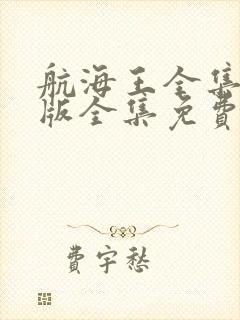 航海王全集
版全集免費
費宇愁